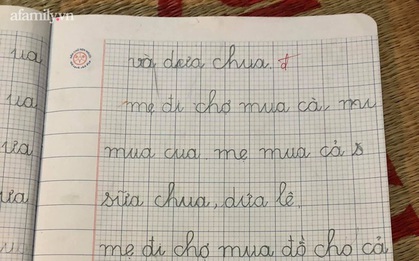 afamily.vn
ua và dưa chua. đ
ua mẹ đi chợ mua cà, mu
ưa mua cua. mẹ mua cả s
ưa sữa chua, dưa lê.
mẹ đi chợ mua đồ cho cả